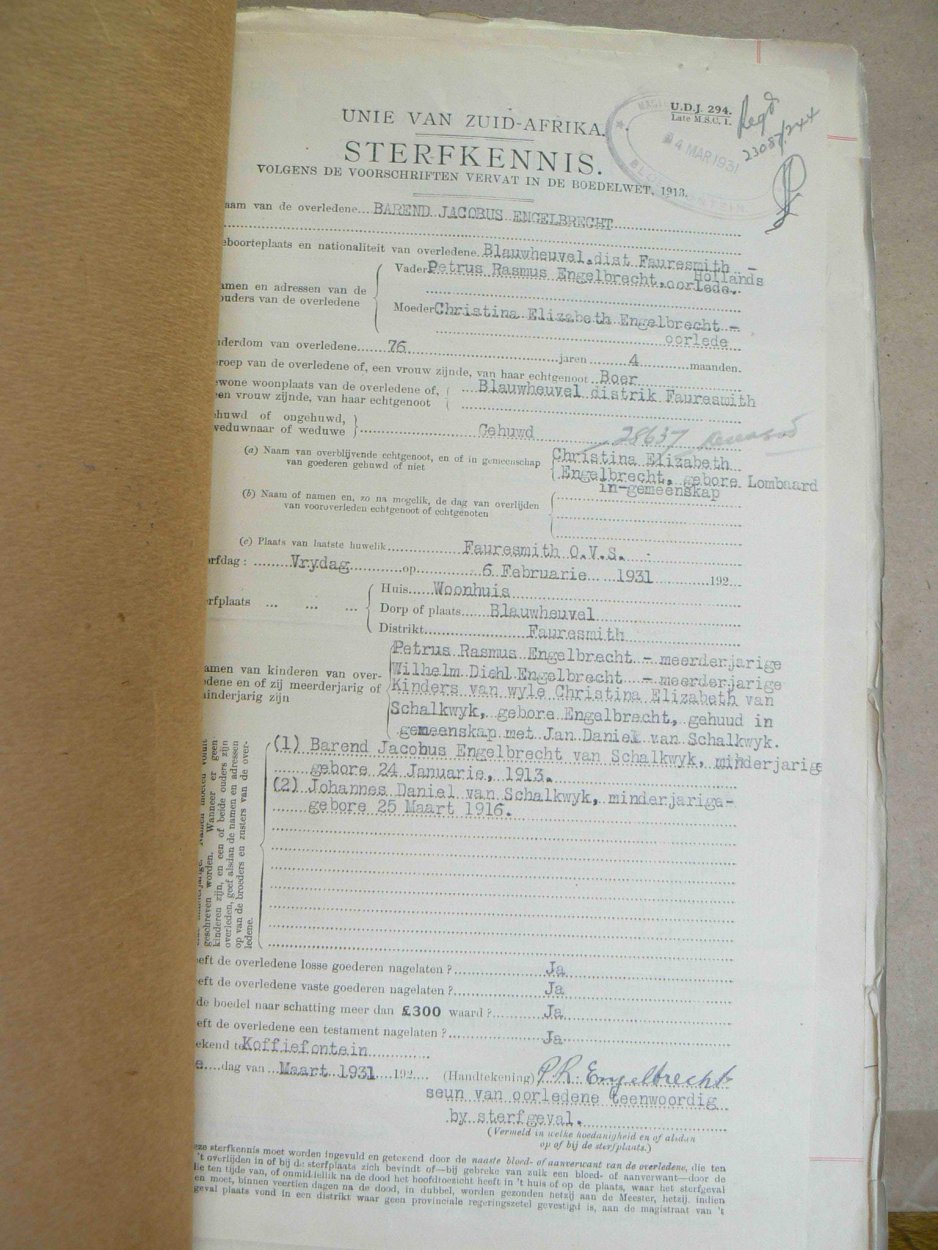 U.D.J. 294.
Late M.S.C. 1.
Regd
23087/244
4 MAR 1931
UNIE VAN ZUID-AFRIKA.
STERFKENNIS.
VOLGENS DE VOORSCHRIFTEN VERVAT IN DE BOEDELWET, 1913.
aam van de overledene BAREND JACOBUS ENGELBRECHT
eboorteplaats en nationaliteit van overledene Blauwheuvel, dist Fauresmith -
Hollands
amen en adressen van de ouders van de overledene
Vader Petrus Rasmus Engelbrecht, oorlede.
Moeder Christina Elizabeth Engelbrecht -
oorlede
uderdom van overledene 76 jaren 4 maanden.
roep van de overledene of, een vrouw zijnde, van haar echtgenoot Boer
ewone woonplaats van de overledene of,
en vrouw zijnde, van haar echtgenoot
Blauwheuvel distrik Fauresmith
ehuwd of ongehuwd,
weduwnaar of weduwe
Gehuwd
28637
(a) Naam van overblijvende echtgenoot, en of in gemeenschap
van goederen gehuwd of niet
Christina Elizabeth
Engelbrecht, gebore Lombaard
in-gemeenskap
(b) Naam of namen en, zo na mogelik, de dag van overlijden
van vooroverleden echtgenoot of echtgenoten
(c) Plaats van laatste huwelik Fauresmith O.V.S.
erfdag: Vrydag op 6 Februarie 1931 192
erfplaats
Huis Woonhuis
Dorp of plaats Blauwheuvel
Distrikt Fauresmith
amen van kinderen van over-
edene en of zij meerderjarig of
minderjarig zijn
Petrus Rasmus Engelbrecht - meerderjarige
Wilhelm Diehl Engelbrecht - meerderjarige
Kinders van wyle Christina Elizabeth van
Schalkwyk, gebore Engelbrecht, gehuud in
gemeenskap met Jan Daniel van Schalkwyk.
(1) Barend Jacobus Engelbrecht van Schalkwyk, minderjarig
gebore 24 Januarie, 1913.
(2) Johannes Daniel van Schalkwyk, minderjarige-
gebore 25 Maart 1916.
geschreven worden. Wanneer er geen
kinderen zijn, en een of beide ouders zijn
overleden, geef alsdan de namen en adressen
op van de broeders en zusters van de over-
ledene.
eeft de overledene losse goederen nagelaten? Ja
eeft de overledene vaste goederen nagelaten? Ja
de boedel naar schatting meer dan £300 waard? Ja
eeft de overledene een testament nagelaten? Ja
ekend te Koffiefontein
e dag van Maart 1931 192 (Handtekening) P.R. Engelbrecht
seun van oorledene teenwoordig
by sterfgeval.
(Vermeld in welke hoedanigheid en of alsdan
op of bij de sterfplaats.)
eze sterfkennis moet worden ingevuld en getekend door de naaste bloed- of aanverwant van de overledene, die ten
't overlijden in of bij de sterfplaats zich bevindt of—bij gebreke van zulk een bloed- of aanverwant—door de
ie ten tijde van, of onmiddellik na de dood het hoofdtoezicht heeft in 't huis of op de plaats, waar het sterfgeval
en moet, binnen veertien dagen na de dood, in dubbel, worden gezonden hetzij aan de Meester, hetzij, indien
geval plaats vond in een distrikt waar geen provinciale regeringszetel gevestigd is, aan de magistraat van 't